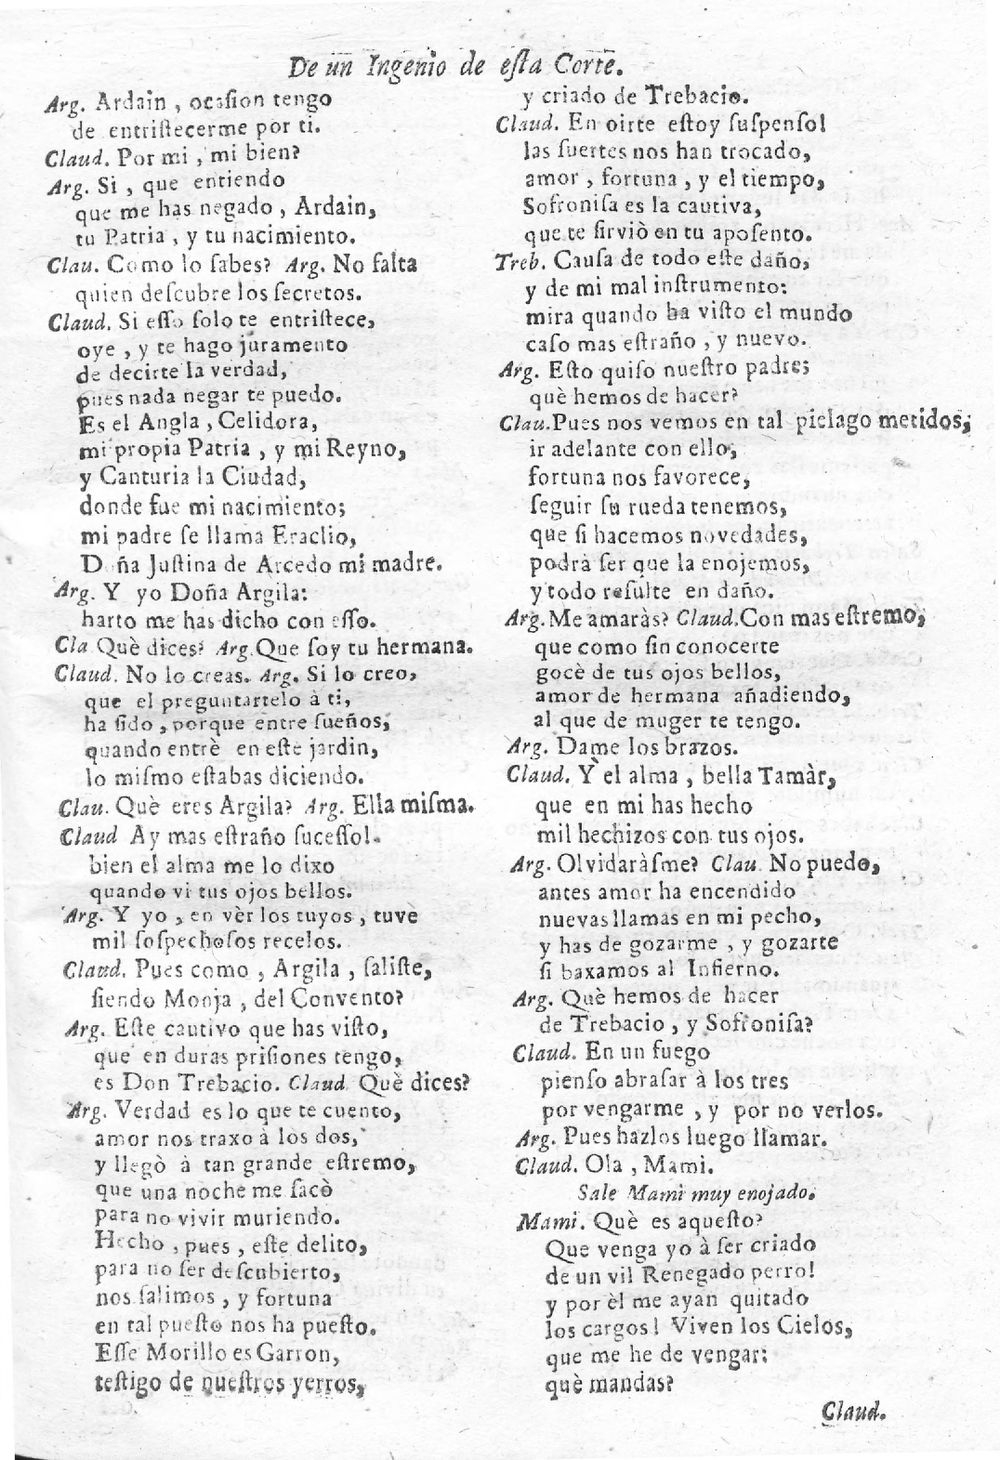 De un Ingenio de eſta Corte.
Arg. Ardain, ocaſion tengo
de entriſtecerme por ti.
Claud. Por mi, mi bien?
Arg. Si, que entiendo
que me has negado, Ardain,
tu Patria, y tu nacimiento.
Clau. Como lo ſabes? Arg. No falta
quien deſcubre los ſecretos.
Claud. Si eſſo ſolo te entriſtece,
oye, y te hago juramento
de decirte la verdad,
pues nada negar te puedo.
Es el Angla, Celidora,
mi propia Patria, y mi Reyno,
y Canturia la Ciudad,
donde fue mi nacimiento;
mi padre ſe llama Eraclio,
Doña Juſtina de Arcedo mi madre.
Arg. Y yo Doña Argila:
harto me has dicho con eſſo.
Cla. Què dices? Arg. Que ſoy tu hermana.
Claud. No lo creas. Arg. Si lo creo,
que el preguntartelo à ti,
ha ſido, porque entre ſueños,
quando entrè en eſte jardin,
lo miſmo eſtabas diciendo.
Clau. Què eres Argila? Arg. Ella miſma.
Claud. Ay mas eſtraño ſuceſſo!
bien el alma me lo dixo
quando vi tus ojos bellos.
Arg. Y yo, en vèr los tuyos, tuve
mil ſoſpechoſos recelos.
Claud. Pues como, Argila, ſaliſte,
ſiendo Monja, del Convento?
Arg. Eſte cautivo que has viſto,
que en duras priſiones tengo,
es Don Trebacio. Claud. Què dices?
Arg. Verdad es lo que te cuento,
amor nos traxo à los dos,
y llegò à tan grande eſtremo,
que una noche me ſacò
para no vivir muriendo.
Hecho, pues, eſte delito,
para no ſer deſcubierto,
nos ſalimos, y fortuna
en tal pueſto nos ha pueſto.
Eſſe Morillo es Garron,
teſtigo de nueſtros yerros,
y criado de Trebacio.
Claud. En oirte eſtoy ſuſpenſo!
las ſuertes nos han trocado,
amor, fortuna, y el tiempo,
Sofroniſa es la cautiva,
que te ſirviò en tu apoſento.
Treb. Cauſa de todo eſte daño,
y de mi mal inſtrumento:
mira quando ha viſto el mundo
caſo mas eſtraño, y nuevo.
Arg. Eſto quiſo nueſtro padre;
què hemos de hacer?
Clau. Pues nos vemos en tal pielago metidos;
ir adelante con ello,
fortuna nos favorece,
ſeguir ſu rueda tenemos,
que ſi hacemos novedades,
podrà ſer que la enojemos,
y todo reſulte en daño.
Arg. Me amaràs? Claud. Con mas eſtremo,
que como ſin conocerte
gocè de tus ojos bellos,
amor de hermana añadiendo,
al que de muger te tengo.
Arg. Dame los brazos.
Claud. Y el alma, bella Tamàr,
que en mi has hecho
mil hechizos con tus ojos.
Arg. Olvidaràſme? Clau. No puedo,
antes amor ha encendido
nuevas llamas en mi pecho,
y has de gozarme, y gozarte
ſi baxamos al Infierno.
Arg. Què hemos de hacer
de Trebacio, y Sofroniſa?
Claud. En un fuego
pienſo abraſar à los tres
por vengarme, y por no verlos.
Arg. Pues hazlos luego llamar.
Claud. Ola, Mami.
Sale Mami muy enojado.
Mami. Què es aqueſto?
Que venga yo à ſer criado
de un vil Renegado perro!
y por èl me ayan quitado
los cargos! Viven los Cielos,
que me he de vengar:
què mandas?
Claud.